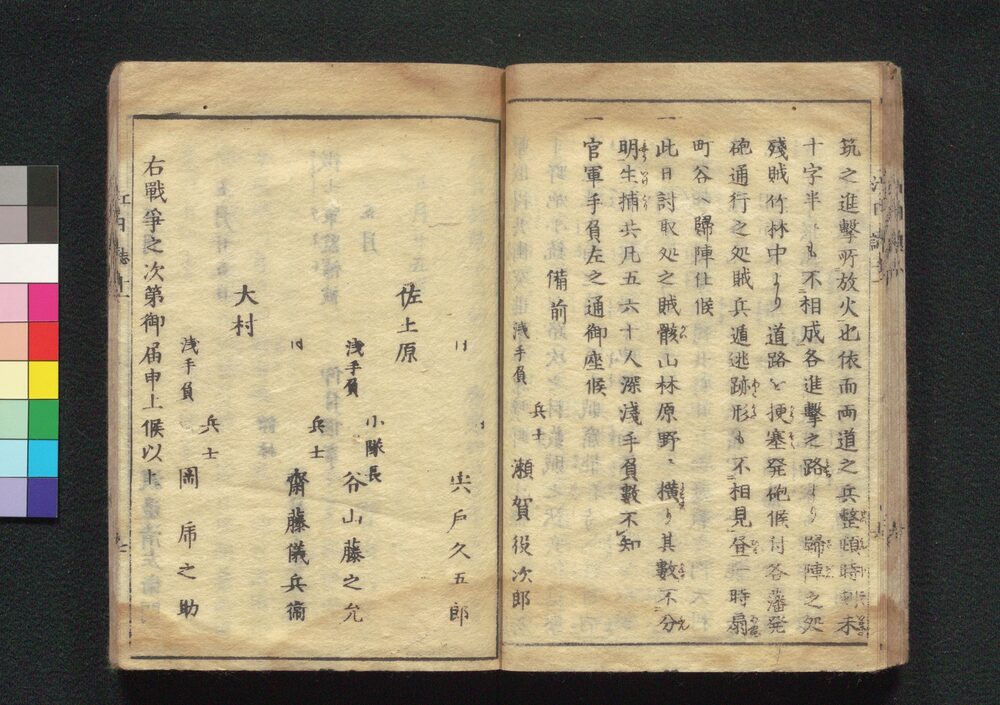 筑之進擊所放火也依而両道之兵整頓時刻未
十字半ニも不相成各進擊之路より歸陣之処
殘賊竹林中より道路を梗塞発砲候付各藩発
砲通行之処賊兵遁逃跡形も不相見昼一時扇
町谷江歸陣仕候
一此日討取処之賊骸山林原野ニ横り其數不分
明生捕共凡五六十人深淺手負數不知
一官軍手負左之通御座候
備前
淺手負 兵士 瀬賀役次郎
〃 〃 宍戸久五郎
佐土原
淺手負 小隊長 谷山藤之允
〃 兵士 齋藤儀兵衞
大村
淺手負 兵士 岡 席之助
右戰爭之次第御届申上候以上
江日誌十一